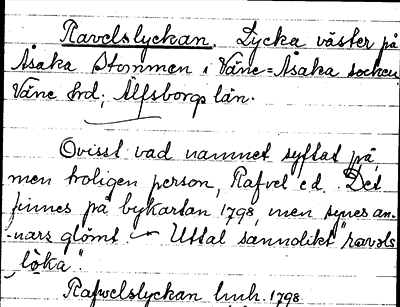 Ravelslyckan. Lycka väster på
Åsaka Stommen i Väne-Åsaka socken,
Väne hrd, Älfsborgs län.
Ovisst vad namnet syftat på,
men troligen person, Rafvel e d. Det
finnes på bykartan 1798, men synes an-
nars glömt. Uttal sannolikt "ravəls
löka".
Rafwelslyckan 1798